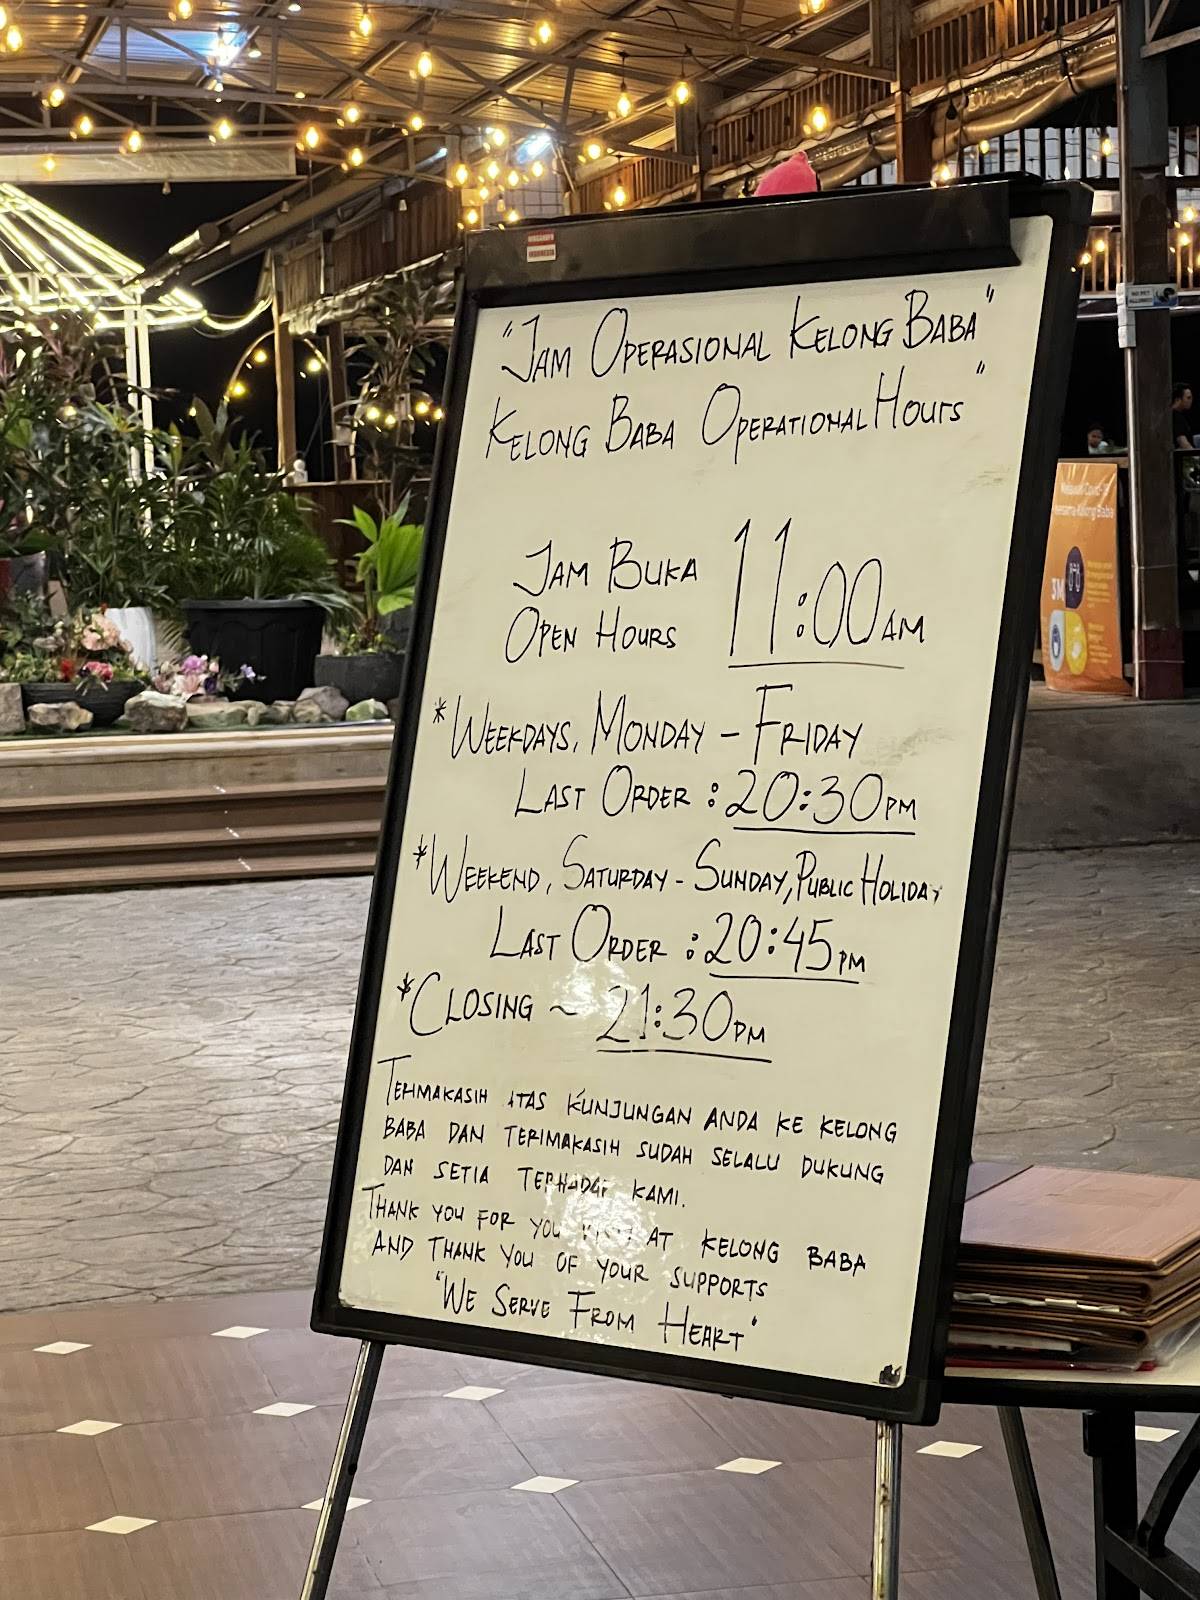 "JAM OPERASIONAL KELONG BABA"
KELONG BABA OPERATIONAL HOURS"
JAM BUKA
OPEN HOURS
11:00 AM
*WEEKDAYS, MONDAY - FRIDAY
LAST ORDER : 20:30 PM
*WEEKEND, SATURDAY - SUNDAY, PUBLIC HOLIDAY
LAST ORDER : 20:45 PM
*CLOSING ~ 21:30 PM
TERIMAKASIH ATAS KUNJUNGAN ANDA KE KELONG
BABA DAN TERIMAKASIH SUDAH SELALU DUKUNG
DAN SETIA TERHADAP KAMI.
THANK YOU FOR YOU VISIT AT KELONG BABA
AND THANK YOU OF YOUR SUPPORTS
"WE SERVE FROM HEART"
INDONESIA
bersama Kelong Baba
3M